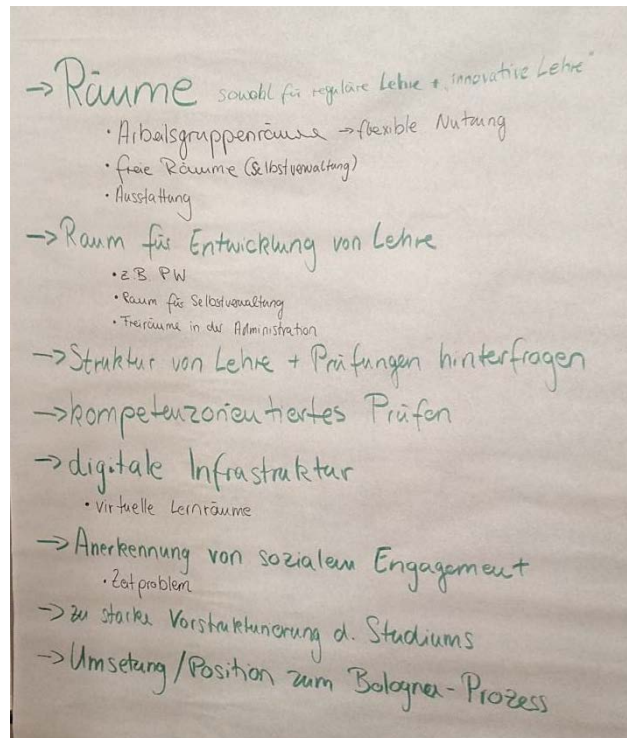 → Räume sowohl für reguläre Lehre + "innovative Lehre"
• Arbeitsgruppenräume → flexible Nutzung
• freie Räume (Selbstverwaltung)
• Ausstattung
→ Raum für Entwicklung von Lehre
• z.B. PW
• Raum für Selbstverwaltung
• Freiräume in der Administration
→ Struktur von Lehre + Prüfungen hinterfragen
→ kompetenzorientiertes Prüfen
→ digitale Infrastruktur
• virtuelle Lernräume
→ Anerkennung von sozialem Engagement
• Zeitproblem
→ zu starke Vorstrukturierung d. Studiums
→ Umsetzung/Position zum Bologna-Prozess